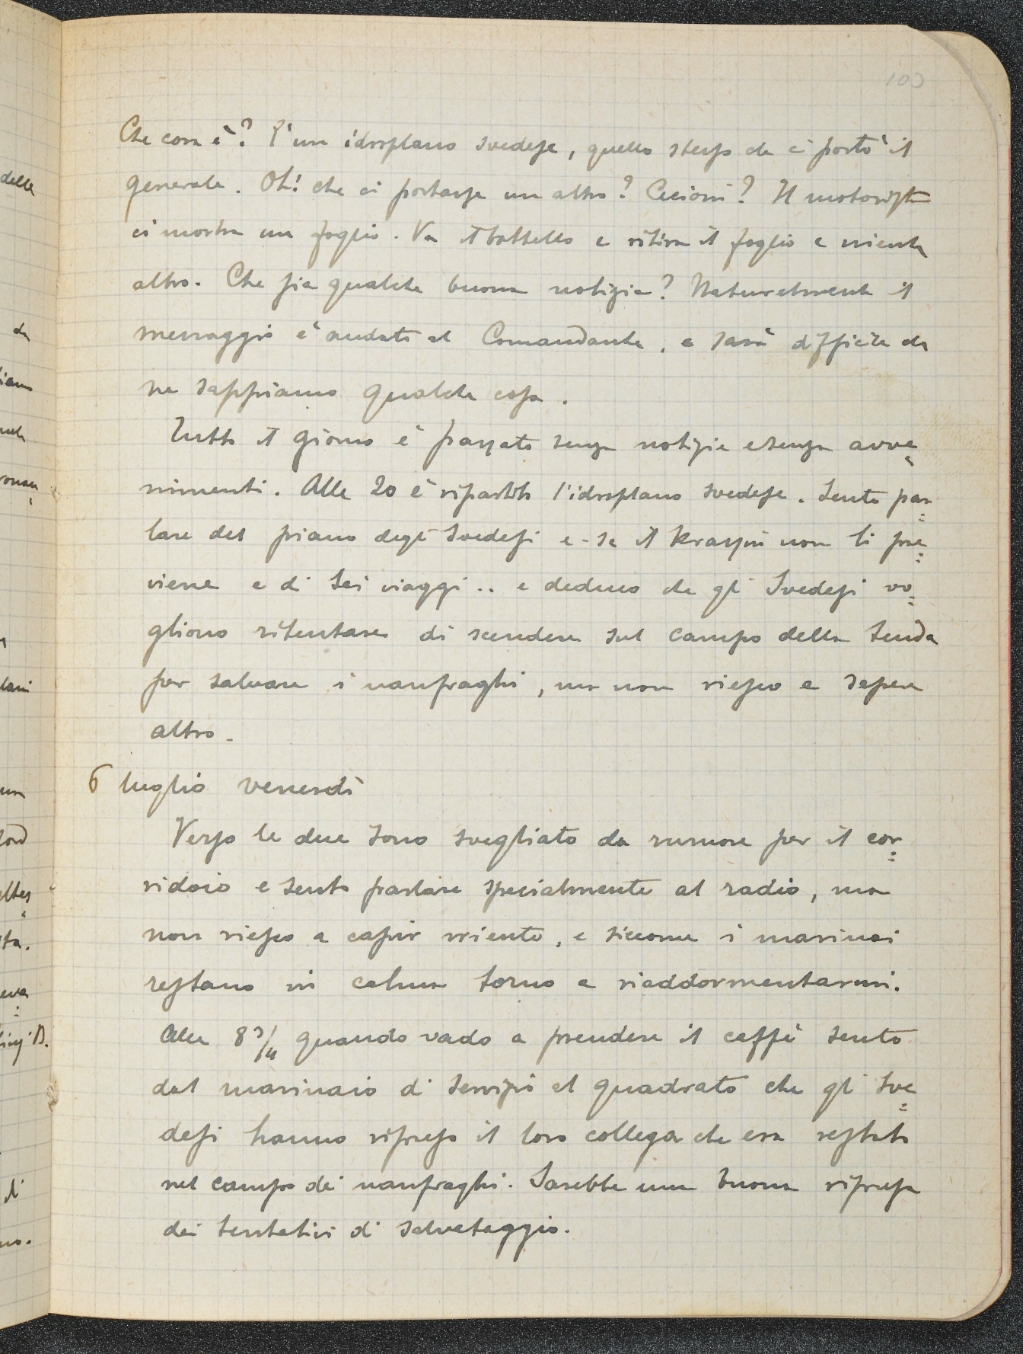 103
Che cosa è? È un idroplano svedese, quello stesso che ci portò il
generale. Oh! che ci portasse un altro? Cecioni? Il motorista
ci mostra un foglio. Va il battello e ritira il foglio e niente
altro. Che sia qualche buona notizia? Naturalmente il
messaggio è andato al Comandante, e sarà difficile che
ne sappiamo qualche cosa.
Tutto il giorno è passato senza notizie e senza avve=
nimenti. Alle 20 è ripartito l'idroplano svedese. Sento par=
lare del piano degli Svedesi e - se il Krassin non li pre=
viene e di sei viaggi .. e deduco che gli Svedesi vo=
gliono ritentare di scendere sul campo della tenda
per salvare i naufraghi, ma non riesco a sapere
altro.
6 luglio venerdì
Verso le due sono svegliato da rumore per il cor=
ridoio e sento parlare specialmente al radio, ma
non riesco a capir niente, e siccome i marinai
restano in calma torno a riaddormentarmi.
Alle 8 3/4 quando vado a prendere il caffè sento
dal marinaio di servizio al quadrato che gli Sve=
desi hanno ripreso il loro collega che era restato
nel campo dei naufraghi. Sarebbe una buona ripresa
dei tentativi di salvataggio.